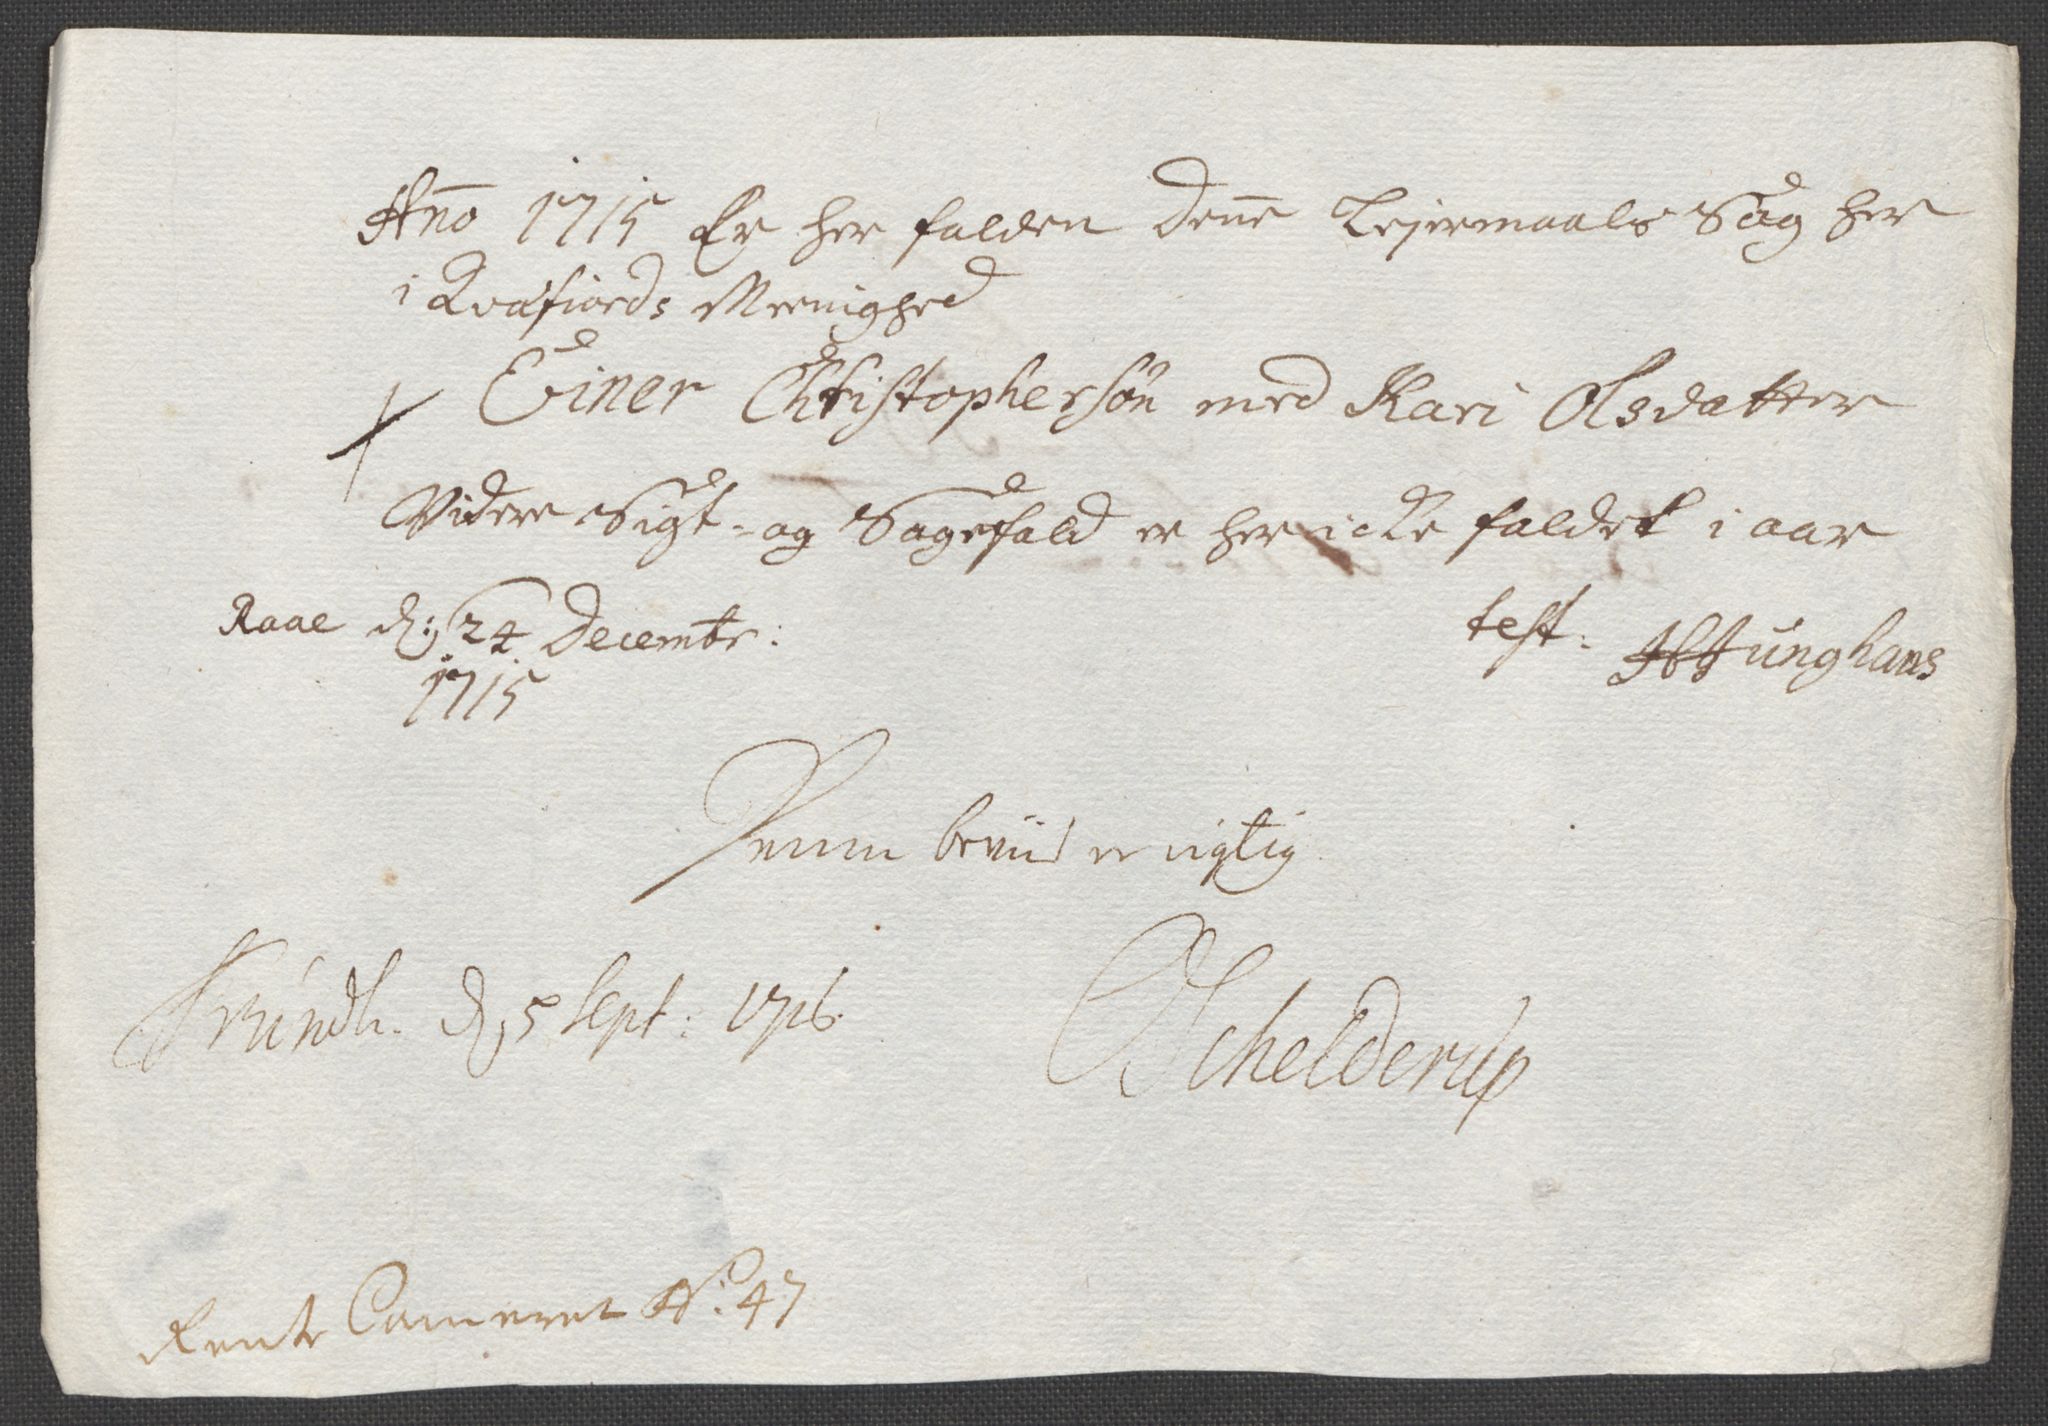 Año 1715 Er her falden deñe Lejermaals Sag her
i Qvæfiords Meenighed
Einer Christophersön med Kari Olsdatter
Videre Sigt- og Sagefald er her icke faldet i aar
Raae d: 24 Decembr:
1715
test. Junghans
Denne beviis er rigtig
Trundh. d. 5 Sept: 1716.
Schelderup
Rente Cammeret No: 47